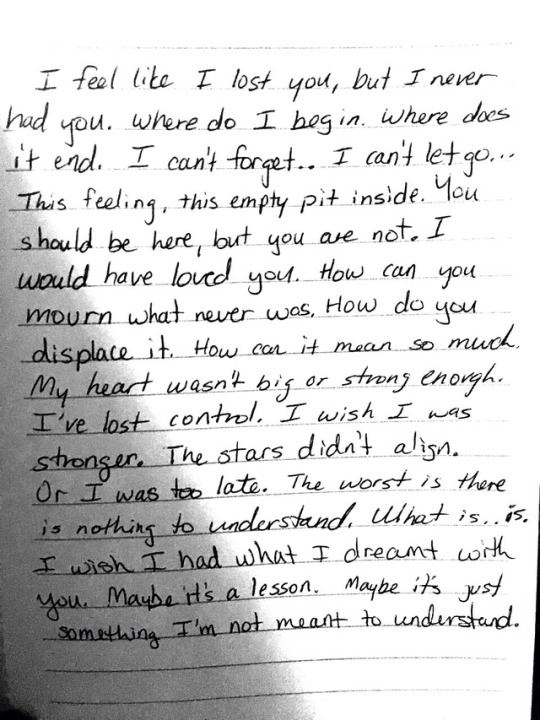 I feel like I lost you, but I never
had you. Where do I begin. Where does
it end. I can't forget.. I can't let go...
This feeling, this empty pit inside. You
should be here, but you are not. I
would have loved you. How can you
mourn what never was. How do you
displace it. How can it mean so much.
My heart wasn't big or strong enough.
I've lost control. I wish I was
stronger. The stars didn't align.
Or I was too late. The worst is there
is nothing to understand. What is.. is.
I wish I had what I dreamt with
you. Maybe it's a lesson. Maybe it's just
something I'm not meant to understand.